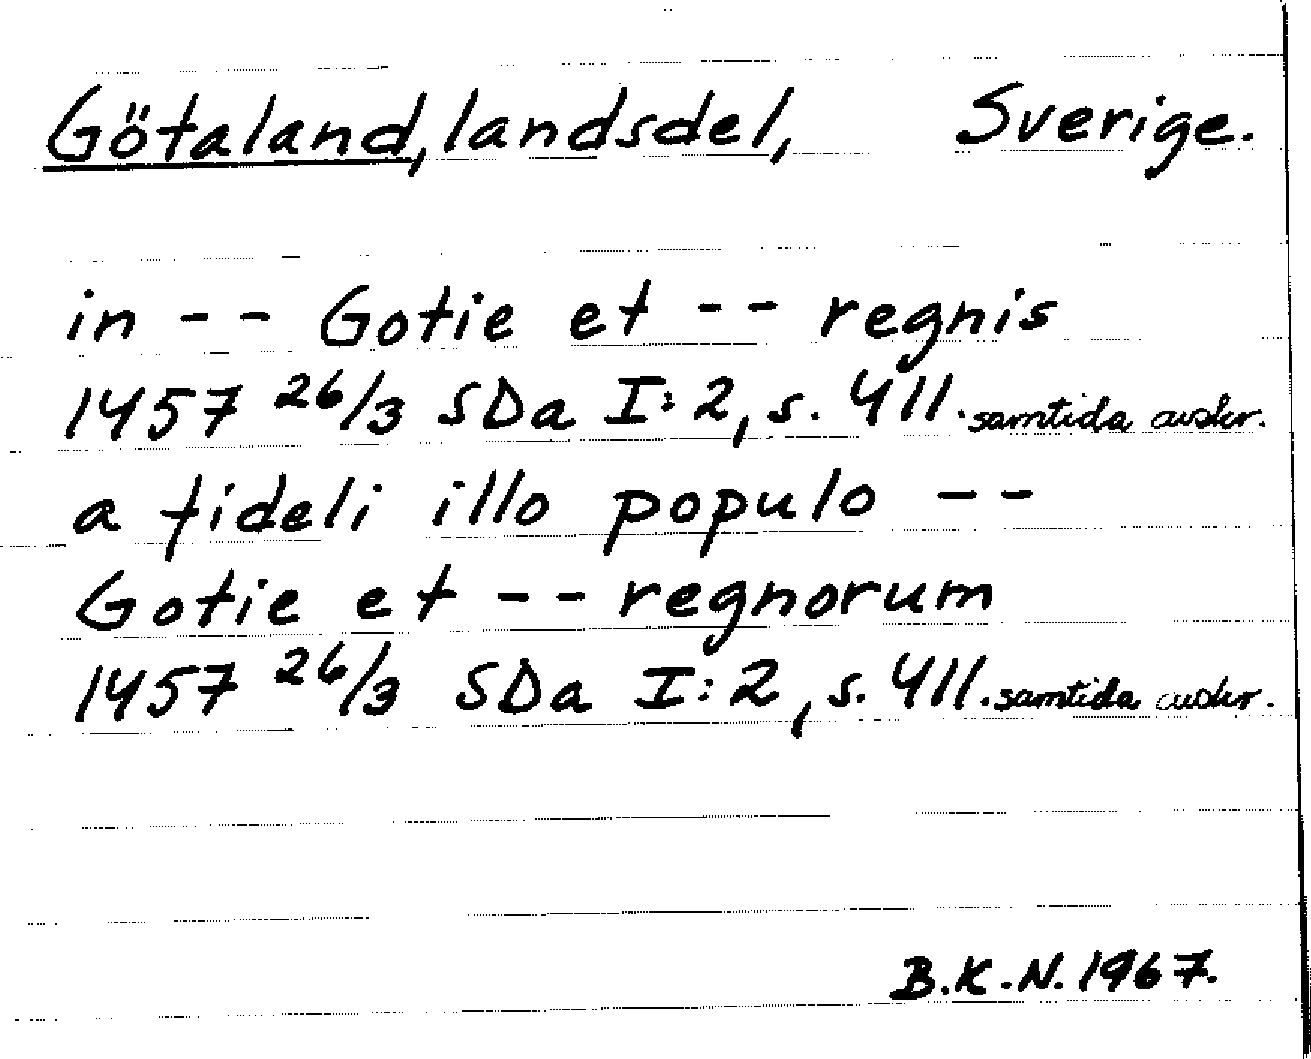 Götaland, landsdel, Sverige.
in -- Gotie et -- regnis
1457 26/3 SDa I:2, s. 411. samtida avskr.
a fideli illo populo --
Gotie et -- regnorum
1457 26/3 SDa I:2, s. 411. samtida avskr.
B.K.N. 1967.